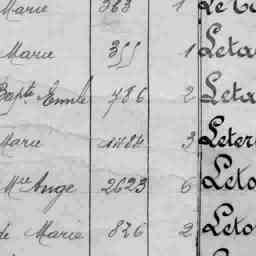 Marie 363 1
Marie 355 1 Leta
Bapte Emile 786 2 Leta
Marie 1484 3 Leter
Mie Ange 2623 6 Leto
de Marie 826 2 Leto